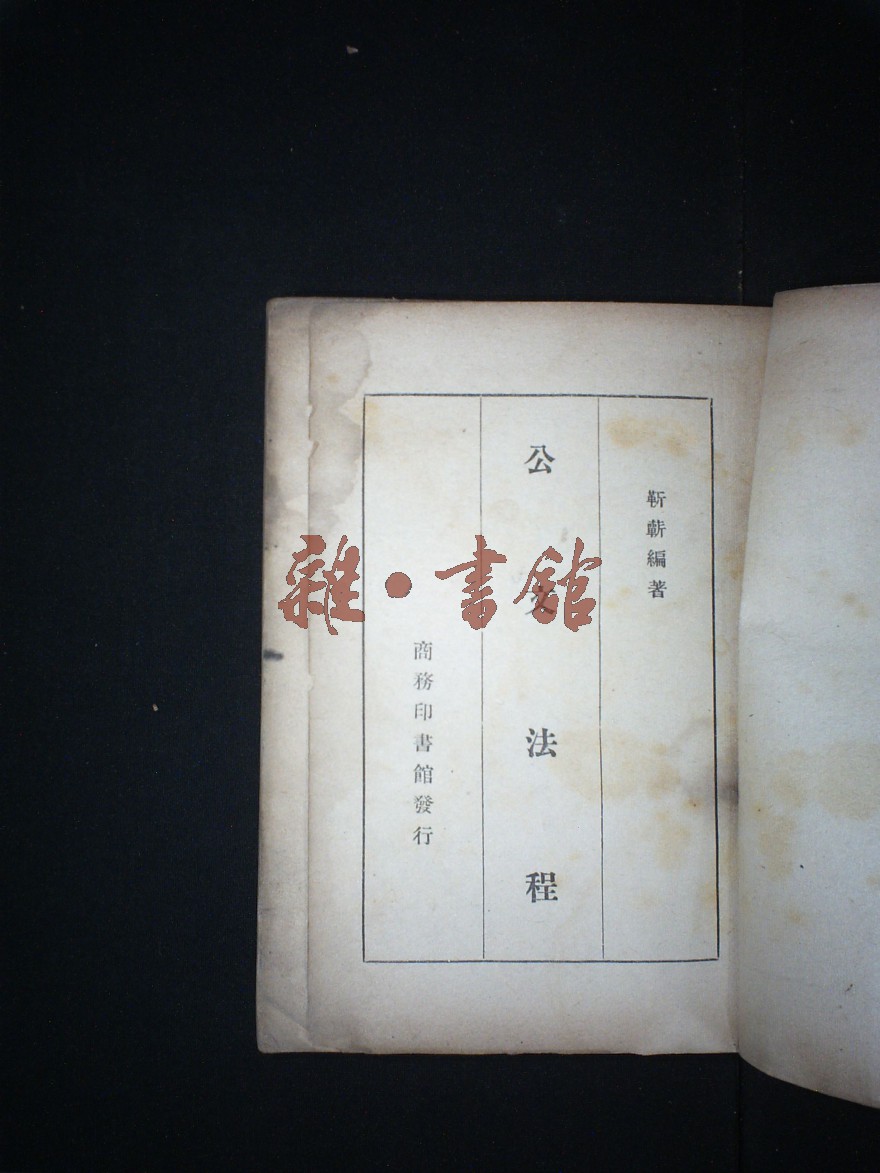 靳蔪編著
公文法程
商務印書館發行
雜·書館